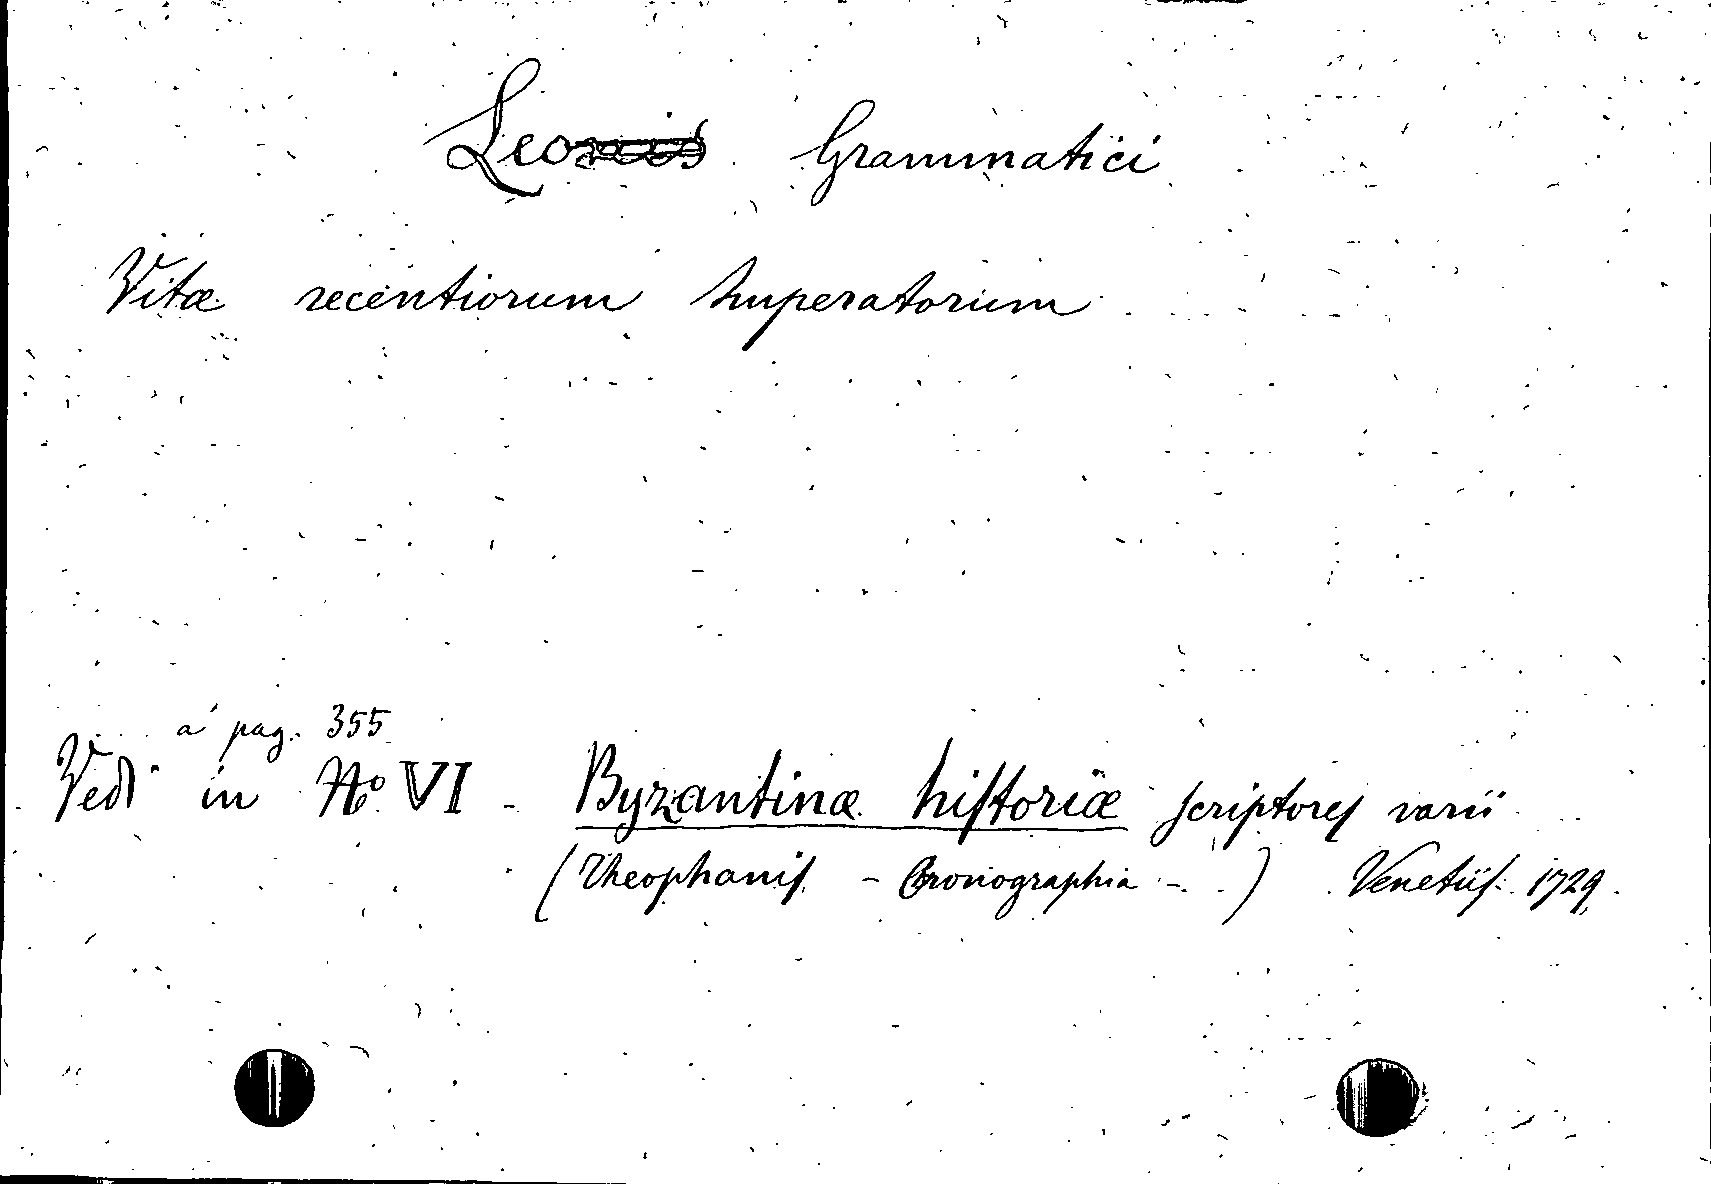 Leonis Grammatici
Vitæ recentiorum Imperatorum
a pag. 355
Vedi in No VI - Byzantinæ hiſtoriæ ſcriptoreſ varii
(Theophaniſ - Cronographia - ) Venetiiſ 1729